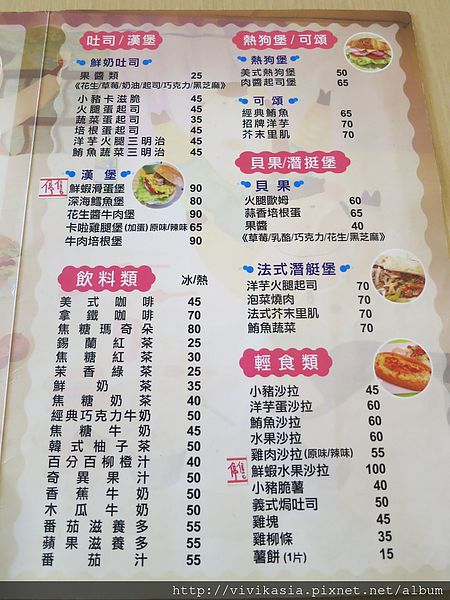 吐司/漢堡
鮮奶吐司
果醬類 25
《花生/草莓/奶油/起司/巧克力/黑芝麻》
小豬卡滋脆 45
火腿蛋起司 45
蔬菜蛋起司 35
培根蛋起司 45
洋芋火腿三明治 45
鮪魚蔬菜三明治 45
漢堡
停售
鮮蝦滑蛋堡 90
深海鱈魚堡 90
花生醬牛肉堡 90
卡啦雞腿堡(加蛋)原味/辣味 65
牛肉培根堡 90
飲料類 冰/熱
美式咖啡 45
拿鐵咖啡 70
焦糖瑪奇朵 80
錫蘭紅茶 25
焦糖紅茶 30
茉香綠茶 25
鮮奶茶 35
焦糖奶茶 40
經典巧克力牛奶 50
焦糖牛奶 45
韓式柚子茶 50
百分百柳橙汁 40
奇異果汁 50
香蕉牛奶 50
木瓜牛奶 50
番茄滋養多 55
蘋果滋養多 55
番茄汁 55
熱狗堡/可頌
熱狗堡
美式熱狗堡 50
肉醬起司堡 65
可頌
經典鮪魚 65
招牌洋芋 70
芥末里肌 70
貝果/潛挺堡
貝果
火腿歐姆 60
蒜香培根蛋 65
果醬 40
《草莓/乳酪/巧克力/花生/黑芝麻》
法式潛艇堡
洋芋火腿起司 70
泡菜燒肉 70
法式芥末里肌 70
鮪魚蔬菜 70
輕食類
小豬沙拉 45
洋芋蛋沙拉 60
鮪魚沙拉 60
水果沙拉 60
雞肉沙拉(原味/辣味) 55
停售
鮮蝦水果沙拉 100
小豬脆薯 40
義式焗吐司 50
雞塊 45
雞柳條 35
薯餅(1片) 15
http://vivikasia.pixnet.net/album